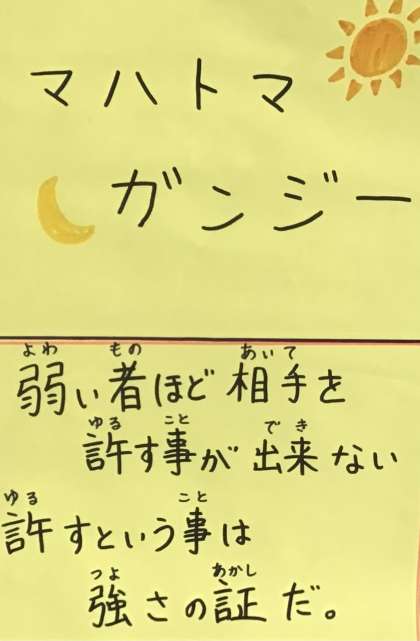 マハトマ
ガンジー
よわ もの あいて
弱い者ほど相手を
ゆる こと でき
許す事が出来ない
ゆる こと
許すという事は
つよ あかし
強さの証だ。